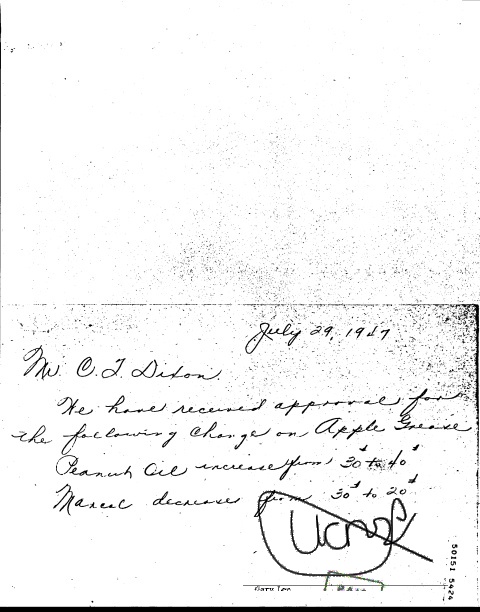 July 29, 1947
Mr. C. T. Dixon.
We have received approval for
the following change on Apple Grease
Peanut Oil increase from 30# to 40#
decreases from 30# to 20#
50151 5424